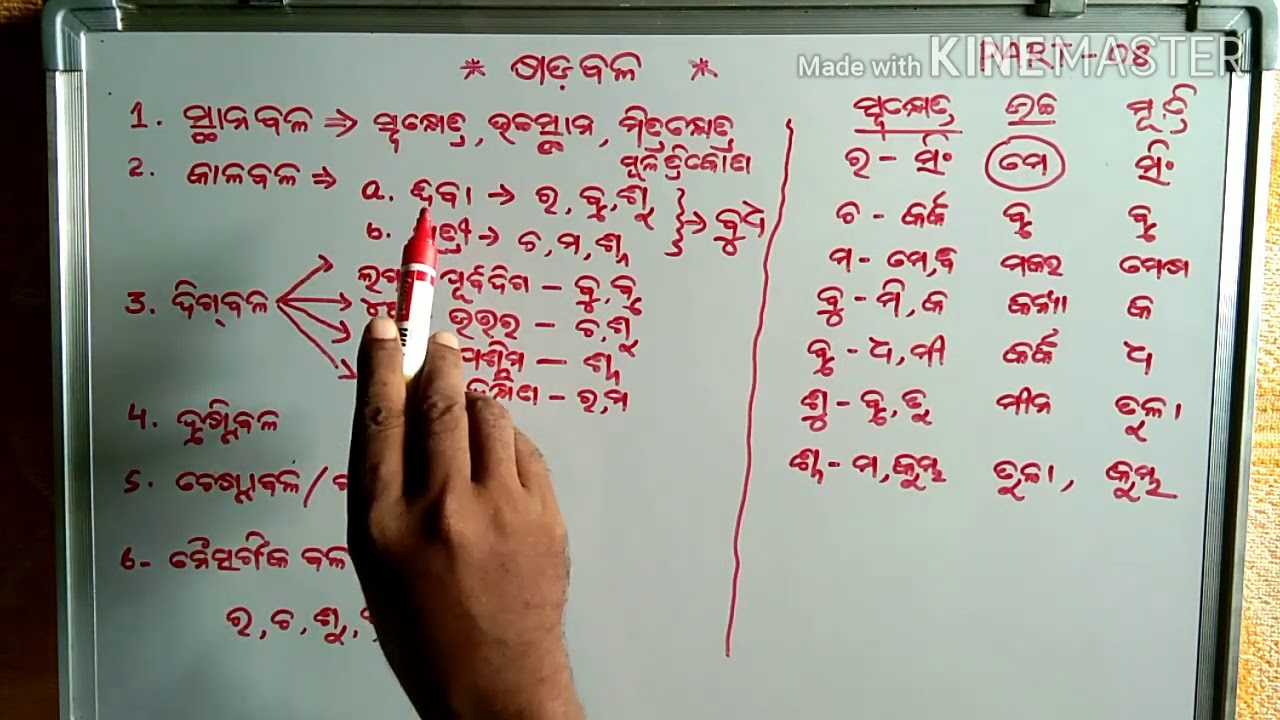 * ଷଡ଼ବଳ *
PART-08
Made with KINEMASTER
1. ସ୍ଥାନବଳ ⇒ ସ୍ୱକ୍ଷେତ୍ର, ଉଚ୍ଚସ୍ଥାନ, ମିତ୍ରକ୍ଷେତ୍ର
ମୂଳତ୍ରିକୋଣ
2. କାଳବଳ ⇒ a. ଦିବା → ର, ବୃ, ଶୁ } → ବୁଧ
b. → ଚ, ମ, ଶ
3. ଦିଗ୍‌ବଳ
ପୂର୍ବଦିଗ - ବୁ, ବୃ
ଉତ୍ତର - ଚ, ଶୁ
ପଶ୍ଚିମ - ଶ
- ର, ମ
4. ଦୃଷ୍ଟିବଳ
5. ଚେଷ୍ଟାବଳ /
6- ନୈସର୍ଗିକ ବଳ
ର, ଚ, ଶୁ,
ସ୍ୱକ୍ଷେତ୍ର ଉଚ୍ଚ
ର - ସିଂ ମେ ସିଂ
ଚ - କର୍କ ବୃ ବୃ
ମ - ମେ, ବି ମକର ମେଷ
ବୁ - ମି, କ କନ୍ୟା କ
ବୃ - ଧ, ମୀ କର୍କ ଧ
ଶୁ - ବୃ, ତୁ ମୀନ ତୁଳା
ଶ - ମ, କୁମ୍ଭ ତୁଳା, କୁମ୍ଭ